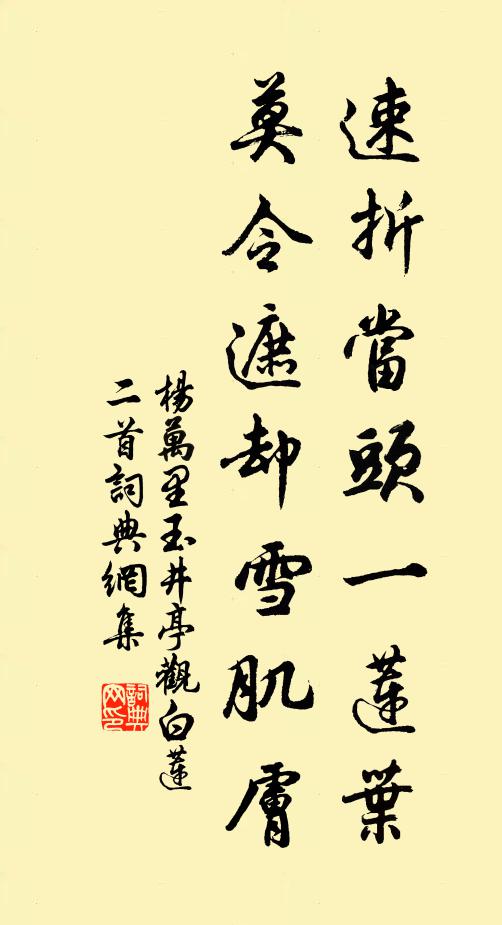 速折當頭一蓮葉
莫令遮却雪肌膚
楊萬里玉井亭觀白蓮
二首詞典網集
詞典
网印